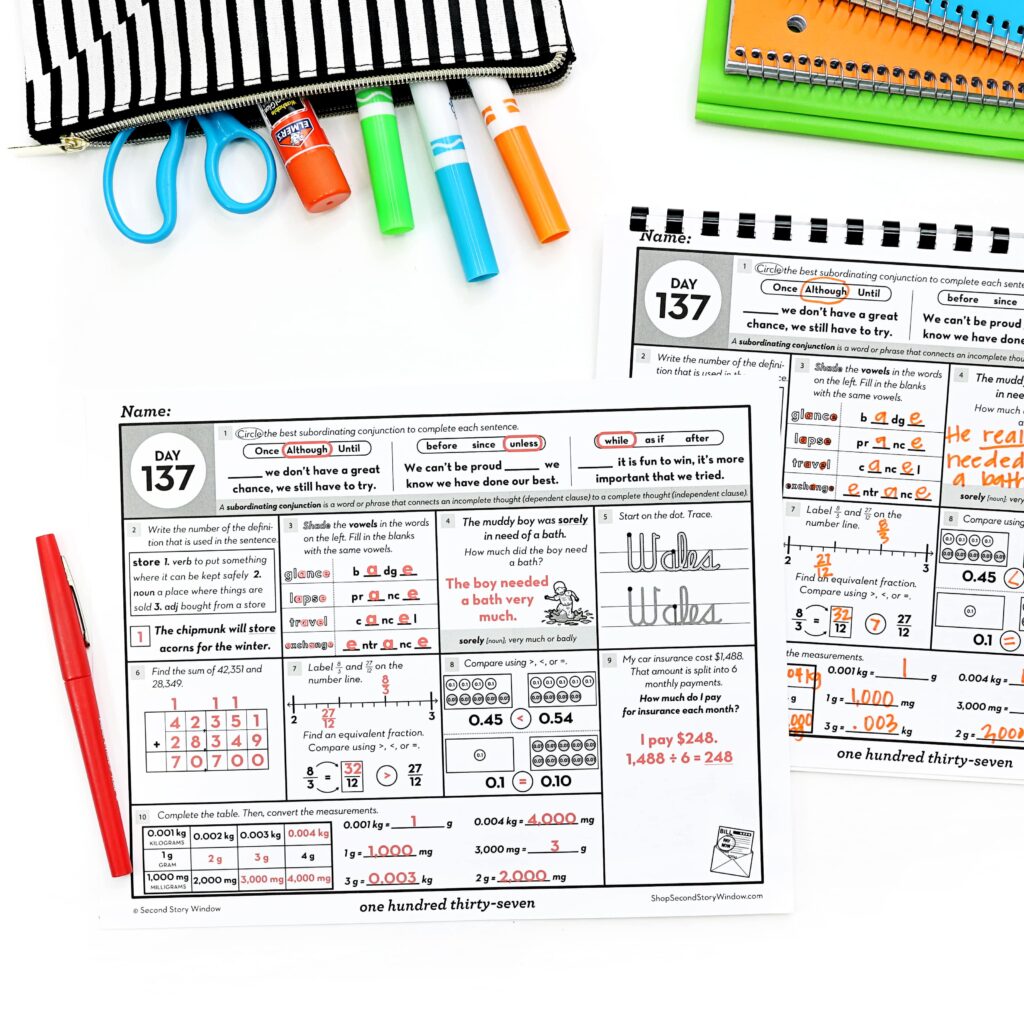 ELMER'S
Washable
Name:
DAY
137
1 Circle the best subordinating conjunction to complete each sentence.
Once Although Until
_____ we don't have a great
chance, we still have to try.
before since unless
We can't be proud _____ we
know we have done our best.
while as if after
_____ it is fun to win, it's more
important that we tried.
A subordinating conjunction is a word or phrase that connects an incomplete thought (dependent clause) to a complete thought (independent clause).
2 Write the number of the defini-
tion that is used in the sentence.
store 1. verb to put something
where it can be kept safely 2.
noun a place where things are
sold 3. adj bought from a store
1 The chipmunk will store
acorns for the winter.
3 Shade the vowels in the words
on the left. Fill in the blanks
with the same vowels.
glance b a dg e
lapse pr a nc e
travel c a nc e l
exchange e ntr a nc e
4 The muddy boy was sorely
in need of a bath.
How much did the boy need
a bath?
The boy needed
a bath very
much.
sorely [noun]: very much or badly
5 Start on the dot. Trace.
Wales
Wales
6 Find the sum of 42,351 and
28,349.
1 1 1
4 2 3 5 1
+ 2 8 3 4 9
7 0 7 0 0
7 Label 8/3 and 27/12 on the
number line.
8/3
2 3
27/12
Find an equivalent fraction.
Compare using >, <, or =.
8/3 = 32/12 > 27/12
8 Compare using >, <, or =.
0.1 0.1 0.1 0.1
0.01 0.01 0.01 0.01 0.01
0.1 0.1 0.1 0.1 0.1
0.01 0.01 0.01 0.01
0.45 < 0.54
0.1
0.01 0.01 0.01 0.01 0.01
0.01 0.01 0.01 0.01 0.01
0.1 = 0.10
9 My car insurance cost $1,488.
That amount is split into 6
monthly payments.
How much do I pay
for insurance each month?
I pay $248.
1,488 ÷ 6 = 248
BILL
PAY
NOW
10 Complete the table. Then, convert the measurements.
0.001 kg 0.002 kg 0.003 kg 0.004 kg
KILOGRAMS
1 g 2 g 3 g 4 g
GRAM
1,000 mg 2,000 mg 3,000 mg 4,000 mg
MILLIGRAMS
0.001 kg = 1 g
1 g = 1,000 mg
3 g = 0.003 kg
0.004 kg = 4,000 mg
3,000 mg = 3 g
2 g = 2,000 mg
© Second Story Window
one hundred thirty-seven
ShopSecondStoryWindow.com
Name:
DAY
137
1 Circle the best subordinating conjunction to complete each sente
Once Although Until
_____ we don't have a great
chance, we still have to try.
before since
We can't be proud
know we have done
A subordinating conjunction is a word or phrase that connects an incomplete thou
2 Write the number of the defini-
tion that is used in the sentence.
3 Shade the vowels in the words
on the left. Fill in the blanks
with the same vowels.
glance b a dg e
lapse pr a nc e
travel c a nc e l
exchange e ntr a nc e
4 The muddy
in nee
How much
a
He real
needed
a bath
sorely [noun]: ver
7 Label 8/3 and 27/12 on the
number line.
8/3
3
27/12
Find an equivalent fraction.
Compare using >, <, or =.
8/3 = 32/12 7 27/12
8 Compare using
0.1 0.1 0.1 0.1
0.01 0.01 0.01 0.01 0.01
0.45 <
0.1
0.1 =
the measurements.
0.001 kg = 1 g
1 g = 1,000 mg
3 g = .003 kg
0.004 kg =
3,000 mg =
2 g = 2,000
one hundred thirty-seven